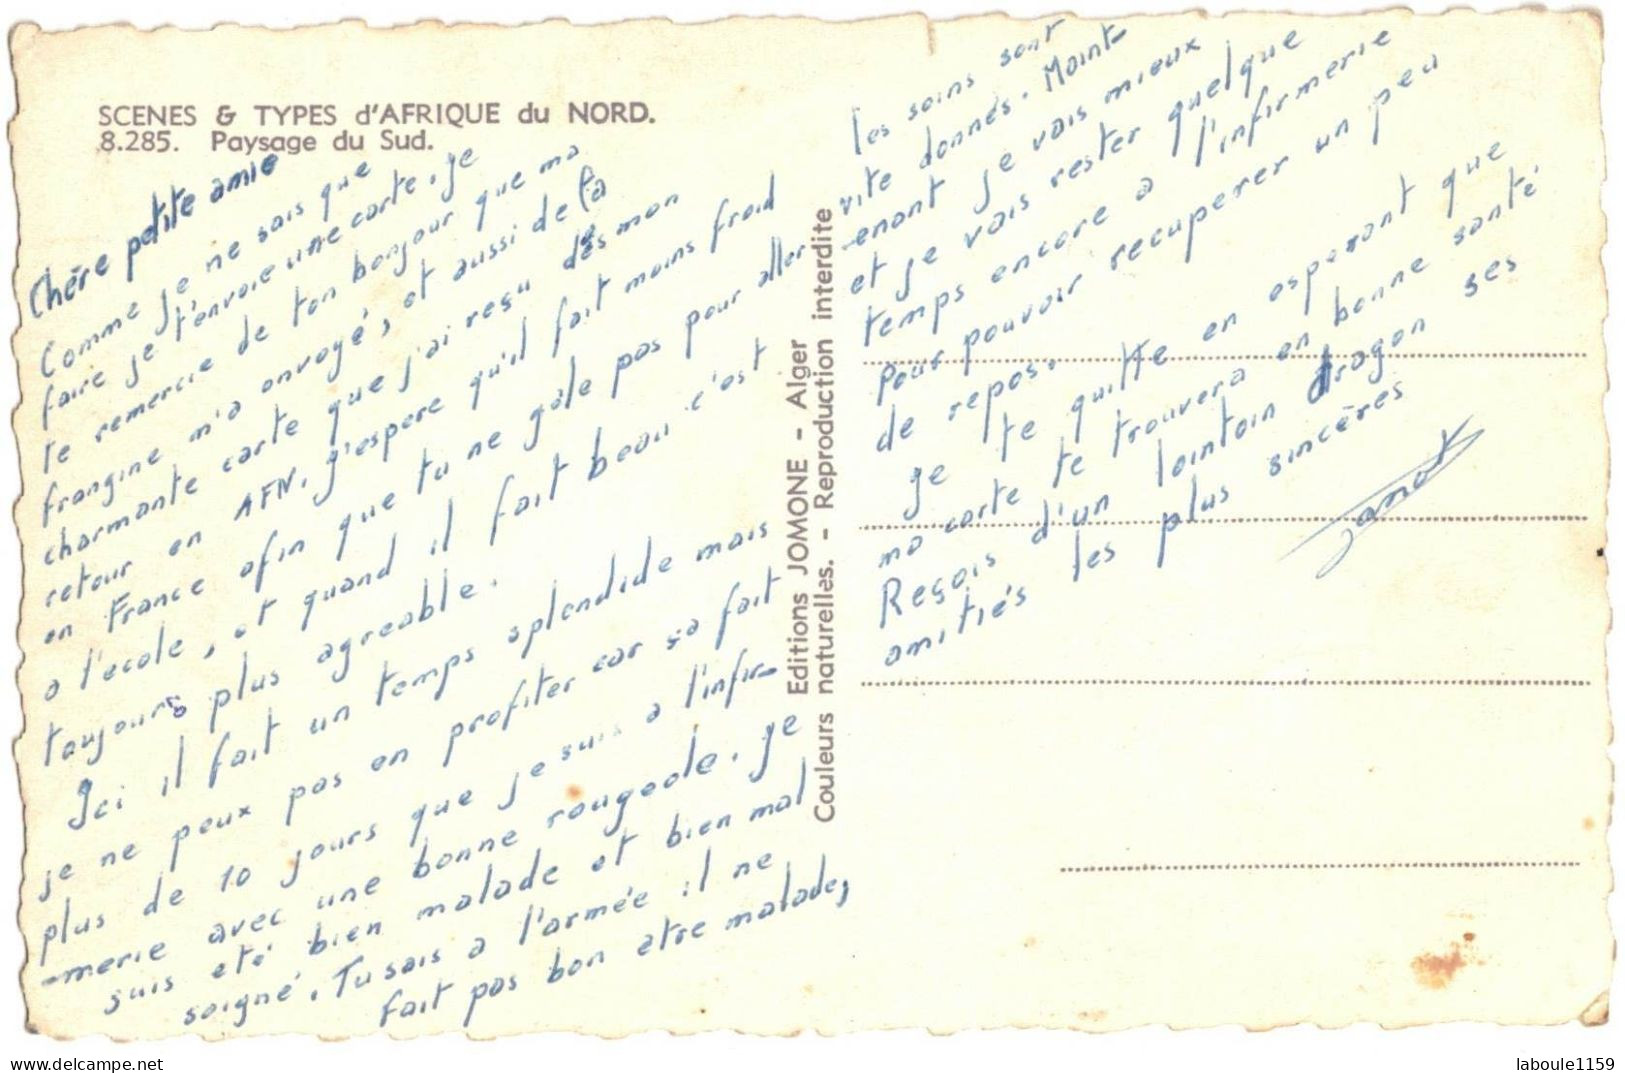 SCENES & TYPES d'AFRIQUE du NORD.
8.285. Paysage du Sud.
Chère petite amie
Comme je ne sais que
faire je t'envoie une carte. Je
te remercie de ton bonjour que ma
frangine m'a envoyé, et aussi de la
charmante carte que j'ai reçu dès mon
retour en AFN. J'espere qu'il fait moins froid
en France afin que tu ne gèle pas pour aller
a l'ecole, et quand il fait beau c'est
toujours plus agreable.
Ici il fait un temps splendide mais
je ne peux pas en profiter car sa fait
plus de 10 jours que je suis a l'infir-
-merie avec une bonne rougeole. Je
suis eté bien malade et bien mal
soigné. Tu sais a l'armée il ne
fait pas bon etre malade,
les soins sont
vite donnés. Maint-
-enant je vais mieux
et je vais rester quelque
temps encore a l'infirmerie
pour pouvoir recuperer un peu
de repos.
Je te quitte en esperant que
ma carte te trouvera en bonne santé
Reçois d'un lointain dragon ses
amitiés les plus sincères
Janot
Editions JOMONE - Alger
Couleurs naturelles. - Reproduction interdite
delcampe.net
laboule1159